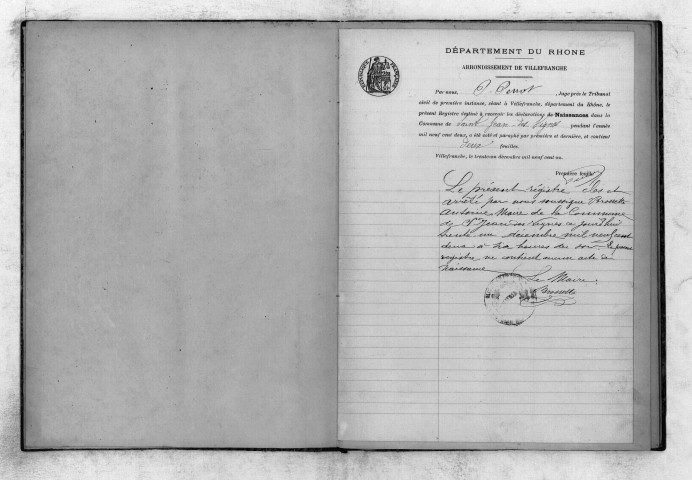 DÉPARTEMENT DU RHONE
ARRONDISSEMENT DE VILLEFRANCHE
Par nous, P. Perrot, Juge près le Tribunal
civil de première instance, séant à Villefranche, département du Rhône, le
présent Registre destiné à recevoir les déclarations de Naissances dans la
Commune de Saint Jean-des-Vignes pendant l'année
mil neuf cent deux, a été coté et paraphé par première et dernière, et contient
deux feuilles.
Villefranche, le trente-un décembre mil neuf cent un.
Première feuille
Le présent registre clos et
arrêté par nous soussigné Brossette
Antoine Maire de la Commune
de St Jean des Vignes ce jourd'hui
trente un décembre mil neuf cent
deux à heures du soir. Le présent
registre ne contient aucun acte de
naissance
Le Maire
Brossette